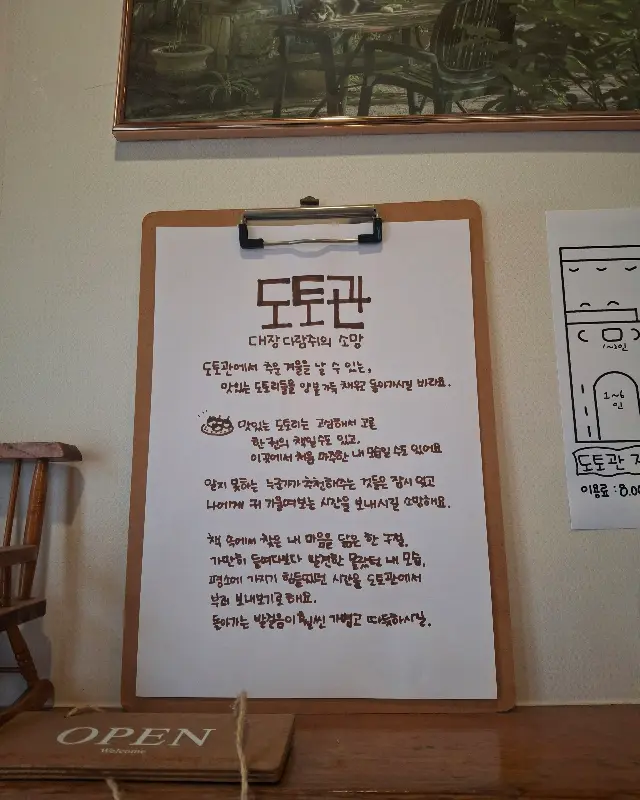 도토관
대장 다람쥐의 소망
도토관에서 추운 겨울을 날 수 있는,
맛있는 도토리들을 양볼 가득 채우고 돌아가시길 바라요.
맛있는 도토리는 고심해서 고른
한 권의 책일수도 있고,
이곳에서 처음 마주한 내 모습일 수도 있어요
알지 못하는 누군가가 추천해주는 것들은 잠시 잊고
나에게 귀 기울여보는 시간을 보내시길 소망해요.
책 속에서 찾은 내 마음을 닮은 한 구절,
가만히 들여다보다 발견한 몰랐던 내 모습,
평소에 가지기 힘들었던 시간을 도토관에서
부려 보내보기로 해요.
돌아가는 발걸음이 훨씬 가볍고 따듯하시길.
1~2인
1~6
인
도토관
이용료 : 8,00
OPEN
Welcome